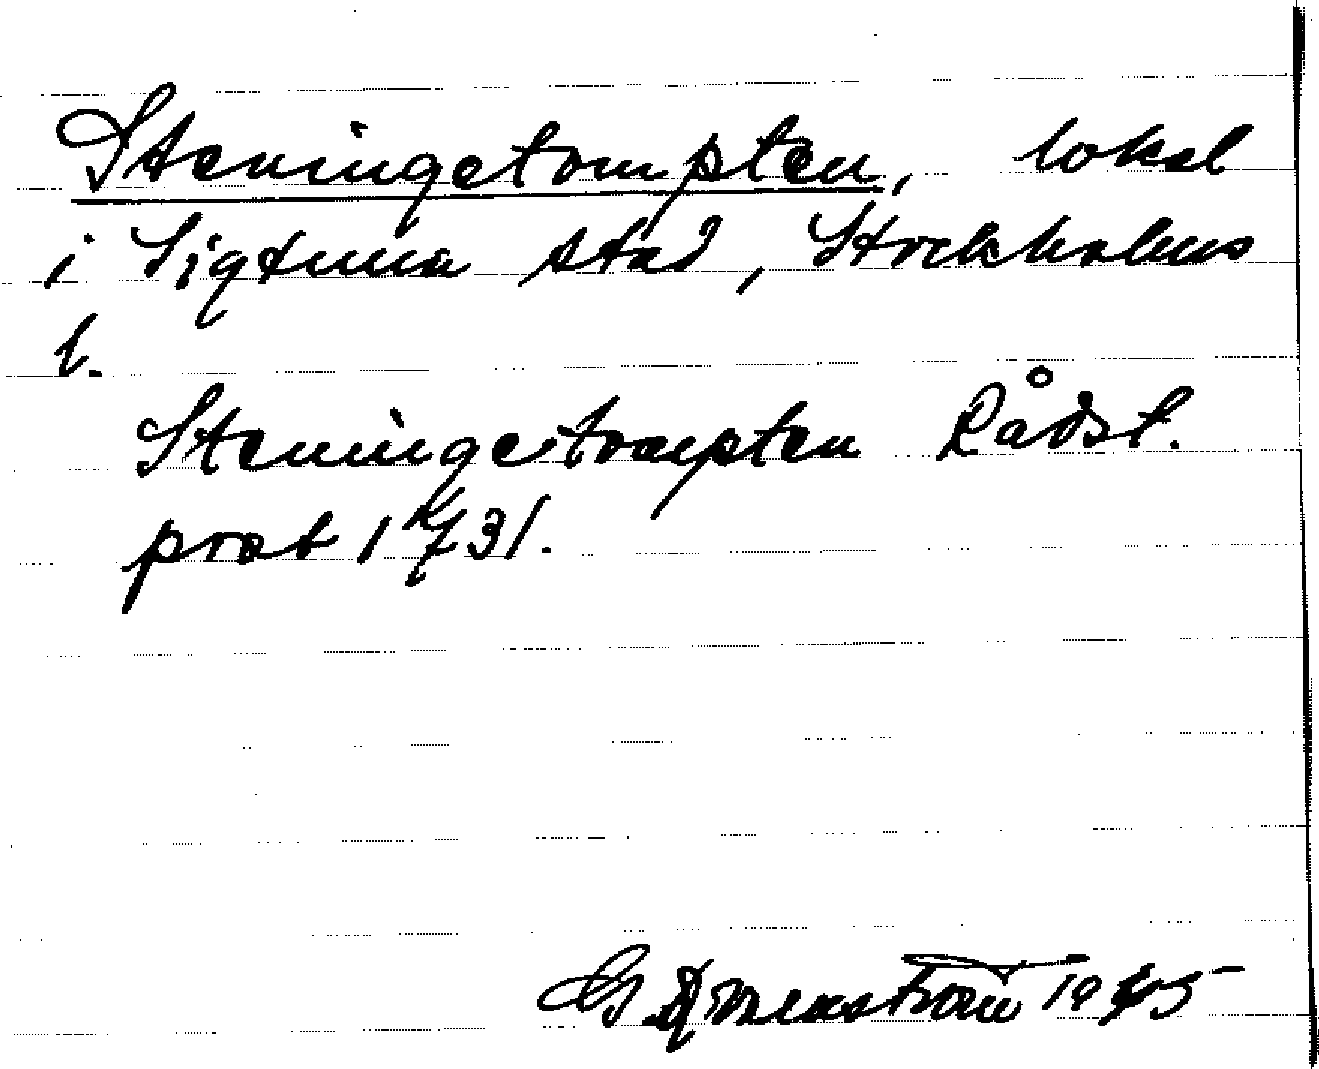 Steningetompten, lokal
i Sigtuna stad, Stockholms
l.
Steningetompten Rådst.
prot 1731.
1945